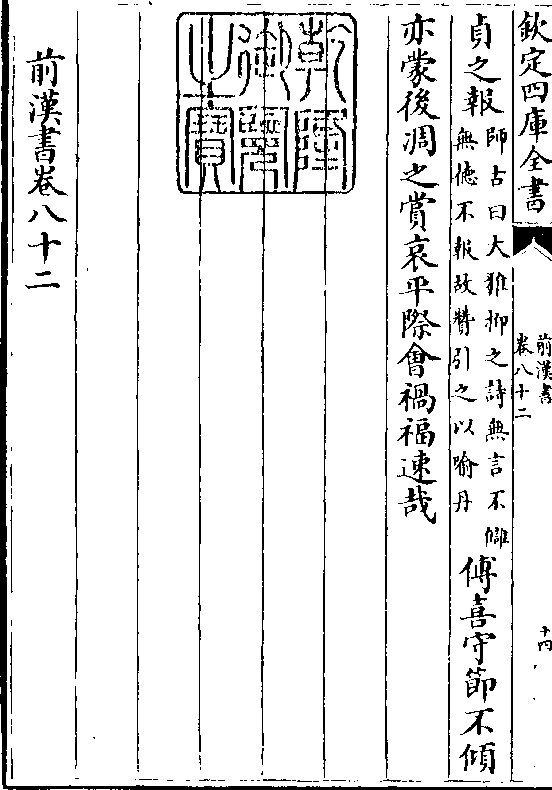 欽定四庫全書
前漢書
卷八十二
十四
貞之報
師古曰大雅抑之詩無言不讎
無德不報故贊引之以喻丹
傅喜守節不傾
亦蒙後凋之賞哀平際會禍福速哉
乾隆
御覽
之寶
前漢書卷八十二